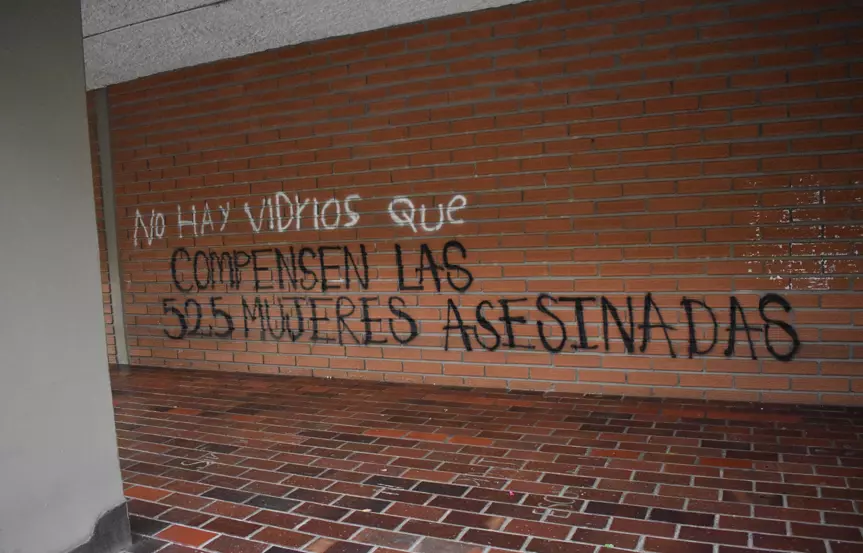 No HAY VIDrIOS QUe
COMPENSEN LAS
525 MUJERES ASESINADAS